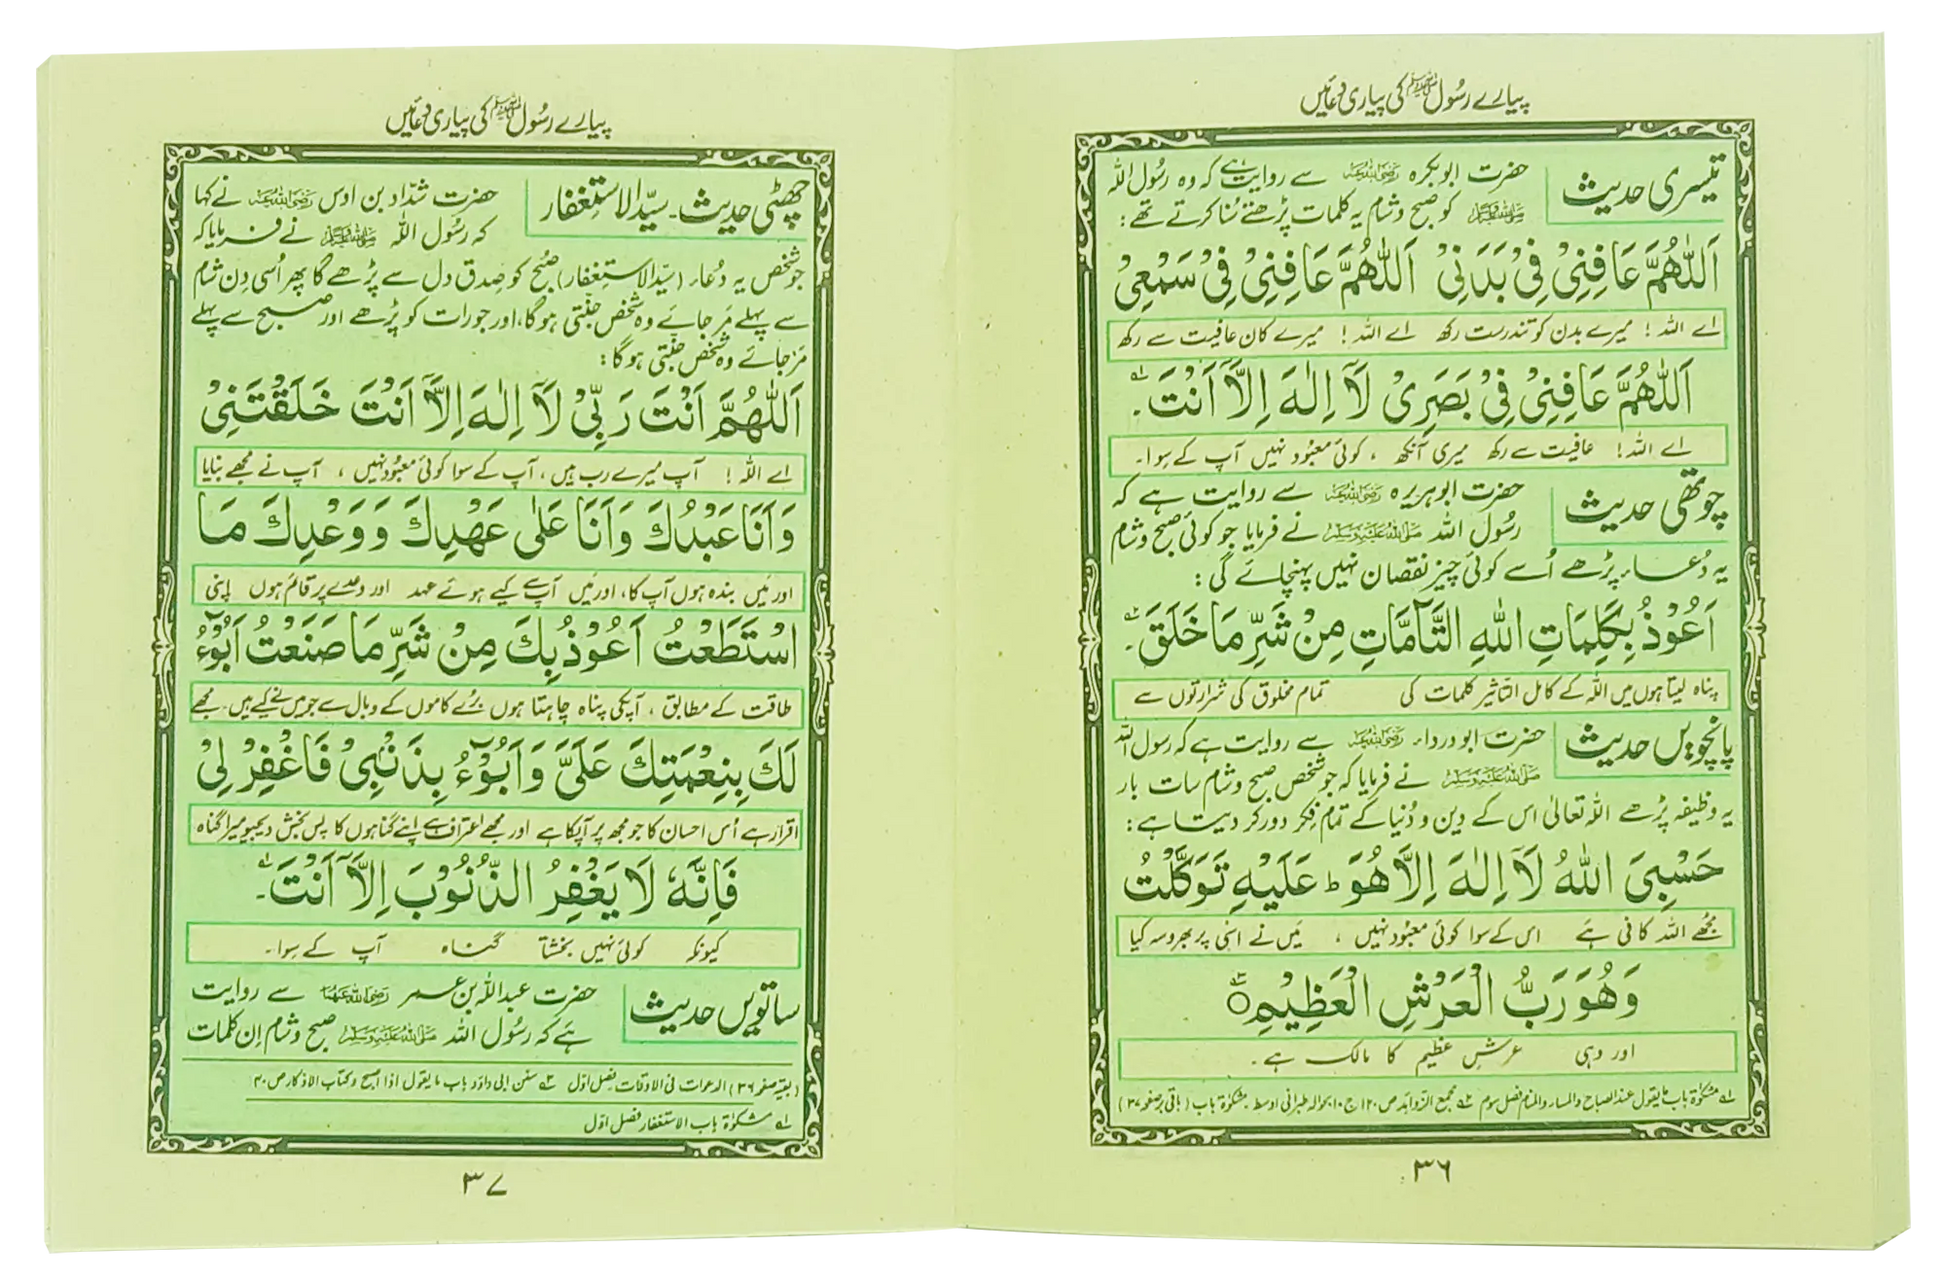 پیارے رسُول ﷺ کی پیاری دعائیں
تیسری حدیث
حضرت ابوبکرہ رضی اللہ عنہ سے روایت ہے کہ وہ رسول اللہ
صلی اللہ علیہ وسلم کو صبح و شام یہ کلمات پڑھتے سُنا کرتے تھے :
اَللّٰهُمَّ عَافِنِيْ فِيْ بَدَنِيْ اَللّٰهُمَّ عَافِنِيْ فِيْ سَمْعِيْ
اے اللہ ! میرے بدن کو تندرست رکھ اے اللہ ! میرے کان عافیت سے رکھ
اَللّٰهُمَّ عَافِنِيْ فِيْ بَصَرِيْ لَآ اِلٰهَ اِلَّآ اَنْتَ ۔ ؎۱
اے اللہ ! عافیت سے رکھ میری آنکھ ، کوئی معبُود نہیں آپ کے سِوا ۔
چوتھی حدیث
حضرت ابوہریرہ رضی اللہ عنہ سے روایت ہے کہ
رسُول اللہ صلی اللہ علیہ وسلم نے فرمایا جو کوئی صبح و شام
یہ دُعاء پڑھے اُسے کوئی چیز نقصان نہیں پہنچائے گی :
اَعُوْذُ بِكَلِمَاتِ اللّٰهِ التَّآمَّاتِ مِنْ شَرِّ مَا خَلَقَ ۔ ؎۲
پناہ لیتا ہوں میں اللہ کے کامل التاثیر کلمات کی تمام مخلوق کی شرارتوں سے
پانچویں حدیث
حضرت ابودرداء رضی اللہ عنہ سے روایت ہے کہ رسول اللہ
صلی اللہ علیہ وسلم نے فرمایا کہ جو شخص صبح و شام سات بار
یہ وظیفہ پڑھے اللہ تعالیٰ اس کے دین و دُنیا کے تمام فِکر دور کر دیتا ہے :
حَسْبِيَ اللّٰهُ لَآ اِلٰهَ اِلَّا هُوَ ط عَلَيْهِ تَوَكَّلْتُ
مجھے اللہ کافی ہے اس کے سوا کوئی معبُود نہیں ، میں نے اسی پر بھروسہ کیا
وَهُوَ رَبُّ الْعَرْشِ الْعَظِيْمِ ○ ؎۳
اور وہی عرشِ عظیم کا مالک ہے ۔
؎۱ مشکوٰۃ باب ما یقول عند الصباح والمساء والمنام فصل سوم ؎۲ مجمع الزوائد ص ۱۲۰ ج ۱۰ بحوالہ طبرانی اوسط مشکوٰۃ باب ( باقی بر صفحہ ۳۷ )
۳۶
پیارے رسُول ﷺ کی پیاری دعائیں
چھٹی حدیث ۔ سیّد الاستِغفار
حضرت شدّاد بن اوس رضی اللہ عنہ نے کہا
کہ رسُول اللہ صلی اللہ علیہ وسلم نے فرمایا کہ
جو شخص یہ دُعاء (سیّد الاستغفار) صُبح کو صِدق دل سے پڑھے گا پھر اُسی دِن شام
سے پہلے مَر جائے وہ شخص جنّتی ہوگا، اور جو رات کو پڑھے اور صبح سے پہلے
مَر جائے وہ شخص جنّتی ہوگا :
اَللّٰهُمَّ اَنْتَ رَبِّيْ لَآ اِلٰهَ اِلَّآ اَنْتَ خَلَقْتَنِيْ
اے اللہ ! آپ میرے رب ہیں ، آپ کے سوا کوئی معبُود نہیں ، آپ نے مجھے بنایا
وَ اَنَا عَبْدُكَ وَ اَنَا عَلٰى عَهْدِكَ وَ وَعْدِكَ مَا
اور میں بندہ ہوں آپ کا، اور میں آپ سے کیے ہوئے عہد اور وعدے پر قائم ہوں اپنی
اسْتَطَعْتُ اَعُوْذُ بِكَ مِنْ شَرِّ مَا صَنَعْتُ اَبُوْٓءُ
طاقت کے مطابق ، آپکی پناہ چاہتا ہوں بُرے کاموں کے وبال سے جو میں نے کیے ہیں ۔ مجھے
لَكَ بِنِعْمَتِكَ عَلَيَّ وَ اَبُوْٓءُ بِذَنْبِيْ فَاغْفِرْ لِيْ
اقرار ہے اُس احسان کا جو مجھ پر آپکا ہے اور مجھے اعتراف ہے اپنے گناہوں کا پس بخش دیجیو میرا گناہ
فَاِنَّهٗ لَا يَغْفِرُ الذُّنُوْبَ اِلَّآ اَنْتَ ۔ ؎۱
کیونکہ کوئی نہیں بخشتا گناہ آپ کے سِوا ۔
ساتویں حدیث
حضرت عبداللہ بن عمر رضی اللہ عنہما سے روایت
ہے کہ رسُول اللہ صلی اللہ علیہ وسلم صبح و شام اِن کلمات
( بقیہ صفحہ ۳۶ ) الدعوات فی الاوقات فصل اوّل ؎۳ سنن ابی داؤد باب ما یقول اذا اصبح وکتاب الاذکار ص ۳۰
؎۱ مشکوٰۃ باب الاستغفار فصل اوّل
۳۷